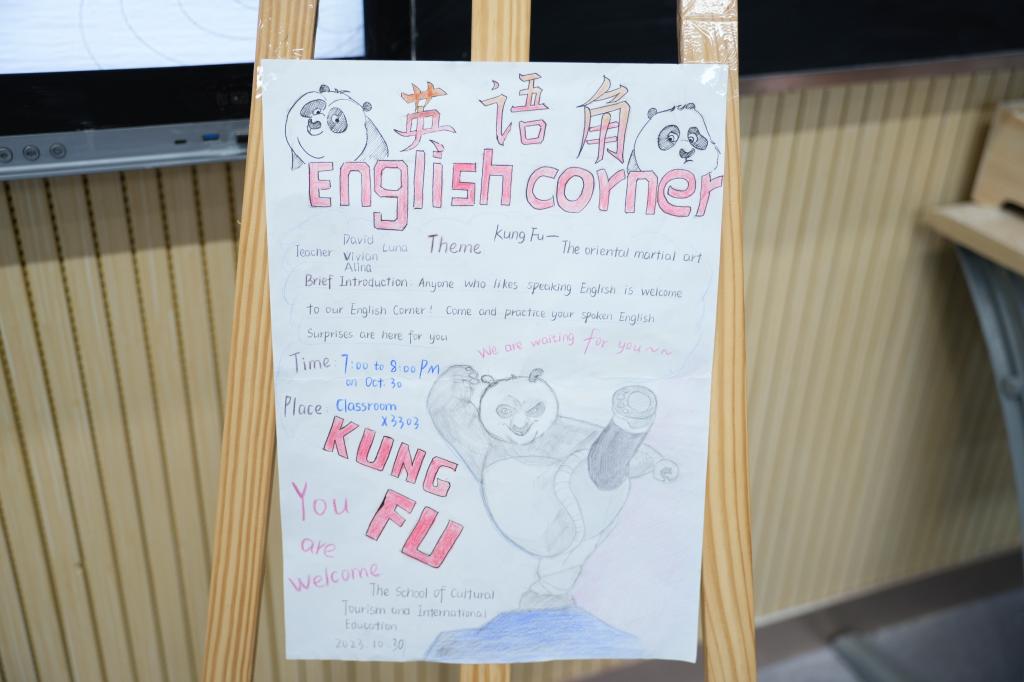 英语角
English corner
Teacher David Luna
Vivian
Alina
Theme Kung Fu—
The oriental martial art
Brief Introduction: Anyone who likes speaking English is welcome
to our English Corner! Come and practice your spoken English
Surprises are here for you
We are waiting for you~~
Time: 7:00 to 8:00 PM
on Oct. 30
Place: Classroom
X3303
KUNG
FU
You
are
welcome
The School of Cultural
Tourism and International
Education
2023.10.30